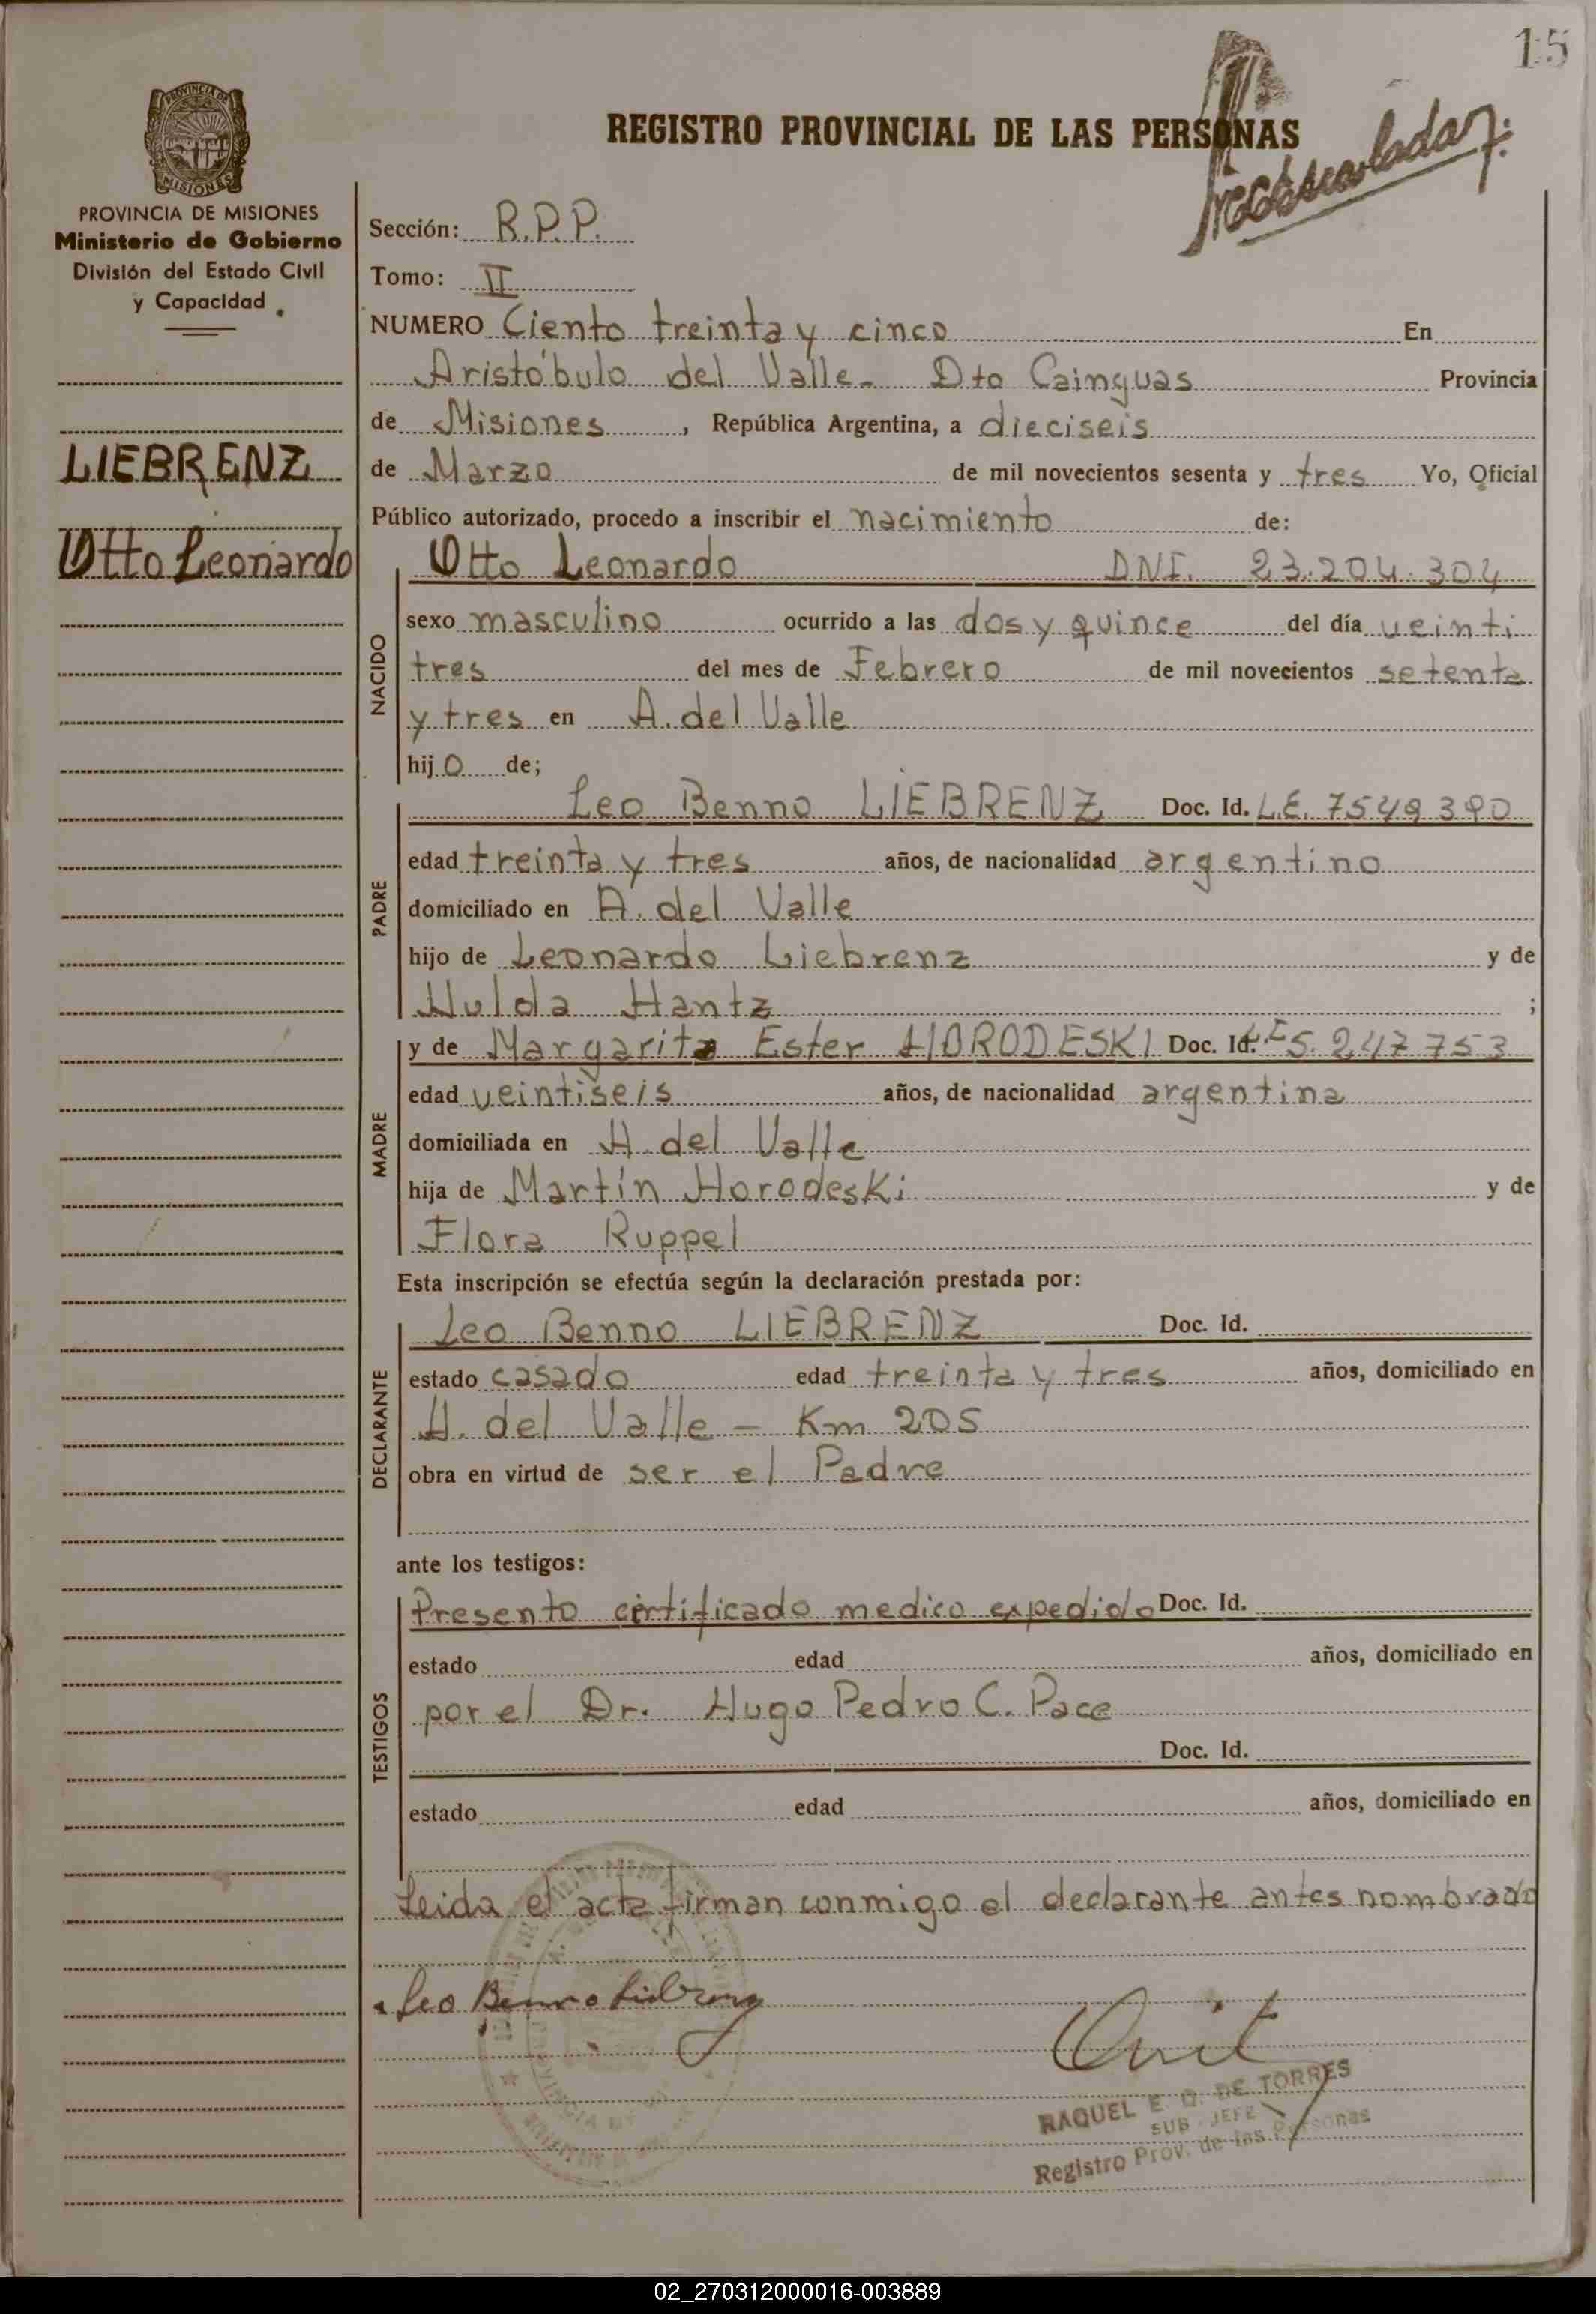 15
REGISTRO PROVINCIAL DE LAS PERSONAS
PROVINCIA DE MISIONES
Ministerio de Gobierno
División del Estado Civil
y Capacidad
LIEBRENZ
Otto Leonardo
Sección: R.P.P.
Tomo: II
NUMERO Ciento treinta y cinco En
Aristóbulo del Valle - Dto Cainguas Provincia
de Misiones, República Argentina, a dieciseis
de Marzo de mil novecientos sesenta y tres Yo, Oficial
Público autorizado, procedo a inscribir el nacimiento de:
NACIDO
Otto Leonardo DNI. 23.204.304
sexo masculino ocurrido a las dos y quince del día veinti
tres del mes de Febrero de mil novecientos setenta
y tres en A. del Valle
hijo de;
PADRE
Leo Benno LIEBRENZ Doc. Id. L.E. 7549390
edad treinta y tres años, de nacionalidad argentino
domiciliado en A. del Valle
hijo de Leonardo Liebrenz y de
Hulda Hantz ;
MADRE
y de Margarita Ester HORODESKI Doc. Id. 5.247753
edad veintiseis años, de nacionalidad argentina
domiciliada en A. del Valle
hija de Martín Horodeski y de
Flora Ruppel
Esta inscripción se efectúa según la declaración prestada por:
DECLARANTE
Leo Benno LIEBRENZ Doc. Id.
estado casado edad treinta y tres años, domiciliado en
A. del Valle - Km 205
obra en virtud de ser el Padre
ante los testigos:
TESTIGOS
Presento certificado medico expedido Doc. Id.
estado edad años, domiciliado en
por el Dr. Hugo Pedro C. Pace
Doc. Id.
estado edad años, domiciliado en
Leida el acta firman conmigo el declarante antes nombrado
Leo Benno Liebrenz
RAQUEL E. DE TORRES
SUB JEFE
Registro Prov. de las Personas
02_270312000016-003889